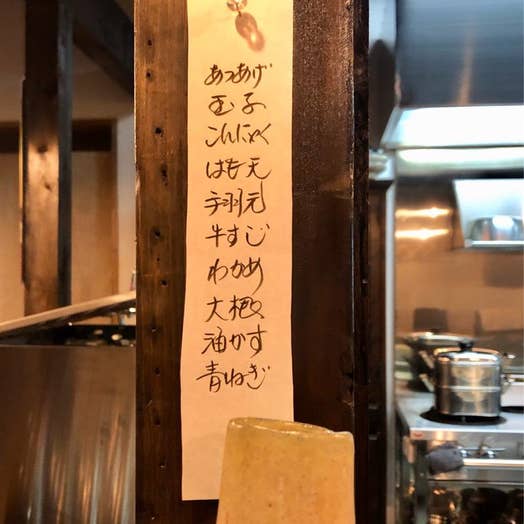 あつあげ
玉子
こんにゃく
はも天
手羽元
牛すじ
わかめ
大根
油かす
青ねぎ